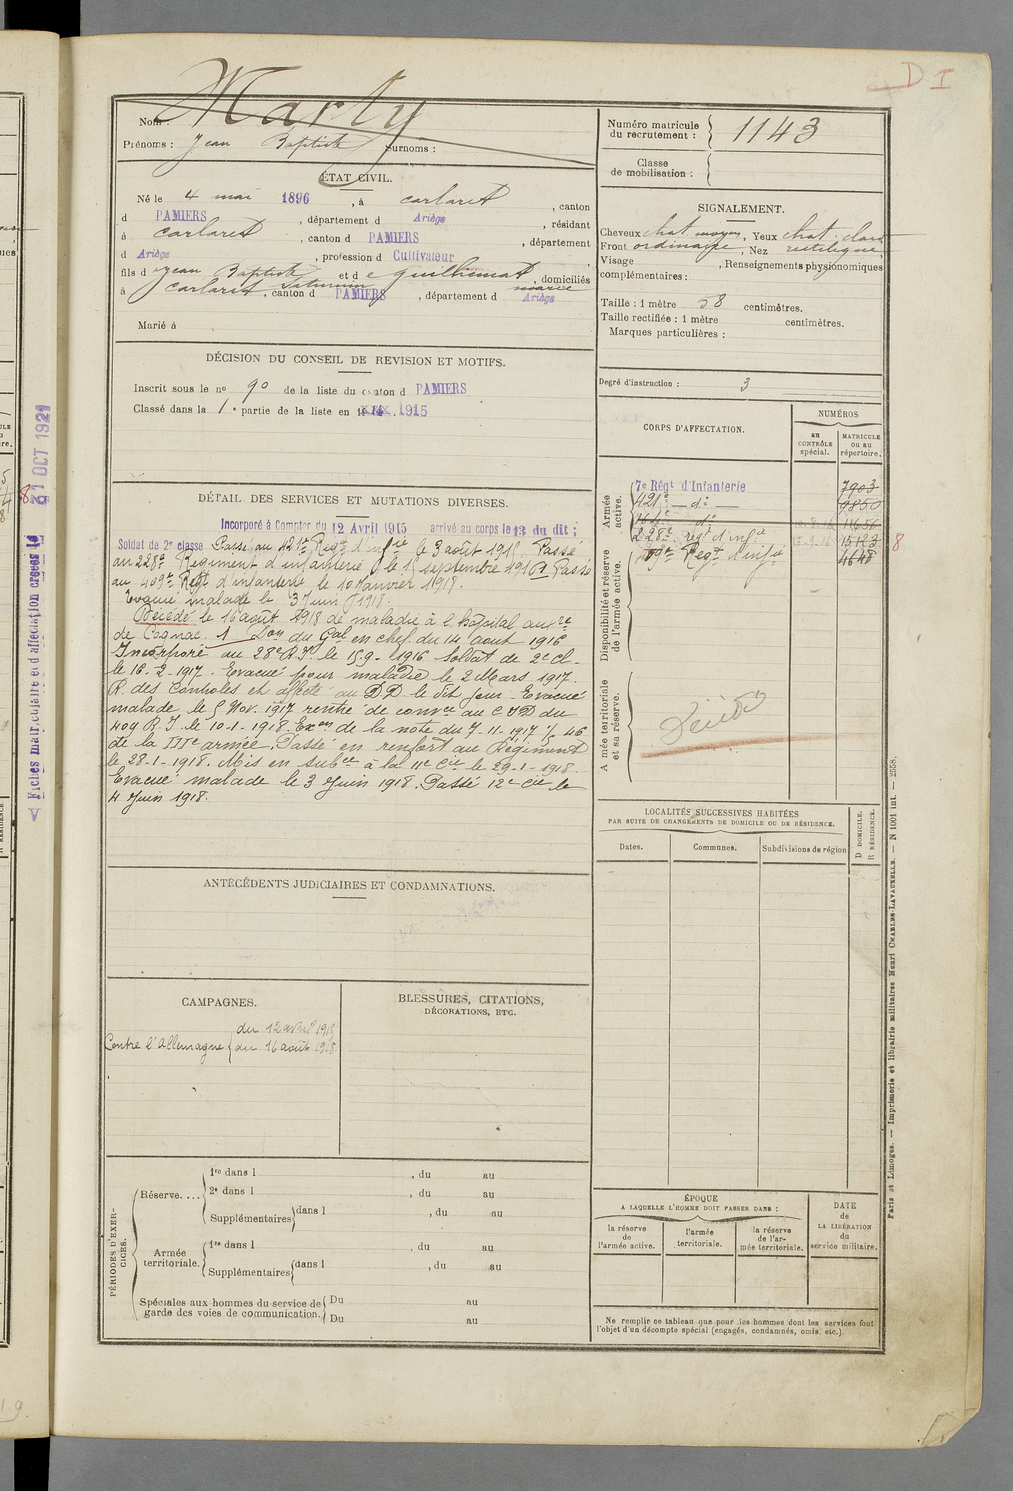 D I
Nom : Marty
Prénoms : Jean Baptiste Surnoms :
Numéro matricule
du recrutement : 1143
Classe
de mobilisation :
ÉTAT CIVIL.
Né le 4 mai 1896, à Carlaret, canton
d PAMIERS, département d Ariège, résidant
à Carlaret, canton d PAMIERS, département
d Ariège, profession d Cultivateur
fils d Jean Baptiste Saturnin et d e Guilhemat marie, domiciliés
à Carlaret, canton d PAMIERS, département d Ariège
Marié à
SIGNALEMENT.
Cheveux chat. moyen, Yeux chat. clair
Front ordinaire, Nez rectiligne
Visage , Renseignements physionomiques
complémentaires :
Taille : 1 mètre 58 centimètres.
Taille rectifiée : 1 mètre centimètres.
Marques particulières :
Degré d'instruction : 3
DÉCISION DU CONSEIL DE REVISION ET MOTIFS.
Inscrit sous le no 90 de la liste du canton d PAMIERS
Classé dans la 1e partie de la liste en 1915
CORPS D'AFFECTATION.
NUMÉROS
au
CONTRÔLE
spécial.
MATRICULE
ou au
répertoire.
Armée
active.
7e Régt d'Infanterie 7903
421e do 9850
164e do
228e régt d'infie 15123
409e Regt d'infie 4648
8
Disponibilité et réserve
de l'armée active.
Armée territoriale
et sa réserve.
DÉTAIL DES SERVICES ET MUTATIONS DIVERSES.
Incorporé à Compter du 12 Avril 1915 arrivé au corps le 13 du dit ;
Soldat de 2e classe Passé au 421e Regt d'infie le 3 août 1915. Passé
au 228e Régiment d'infanterie le 15 septembre 1916 Passé
au 409e Régt d'infanterie le 10 Janvier 1918.
Evacué malade le 3 Juin 1918.
Décédé le 16 août 1918 de maladie à l'hôpital auxre
de Cognac. 1 Don du Gal en chef du 14 aout 1916
Incorporé au 28e R.I. le 15-9-1916 Soldat de 2e cl.
le 16-2-1917. Evacué pour maladie le 2 Mars 1917.
R. des Contrôles et affecté au DD le dit jour. Evacué
malade le 5 Nov. 1917 rentré de convce au CID du
409 R.I. le 10-1-1918. Exon de la note du 7-11-1917 % 46
de la IIIe armée. Passé en renfort au Régiment
le 28-1-1918. Mis en subce à la 11e Cie le 29-1-1918.
Evacué malade le 3 Juin 1918. Passé 12e Cie le
4 Juin 1918.
LOCALITÉS SUCCESSIVES HABITÉES
PAR SUITE DE CHANGEMENTS DE DOMICILE OU DE RÉSIDENCE.
Dates.
Communes.
Subdivisions de région
D DOMICILE.
R RÉSIDENCE.
ANTÉCÉDENTS JUDICIAIRES ET CONDAMNATIONS.
CAMPAGNES.
Contre l'Allemagne
du 12 avril 1915
au 16 août 1918.
BLESSURES, CITATIONS,
DÉCORATIONS, ETC.
PÉRIODES D'EXERCICES.
Réserve....
1re dans l , du au
2e dans l , du au
Supplémentaires dans l , du au
Armée
territoriale.
1re dans l , du au
Supplémentaires dans l , du au
Spéciales aux hommes du service de
garde des voies de communication.
Du au
Du au
ÉPOQUE
A LAQUELLE L'HOMME DOIT PASSER DANS :
la réserve
de
l'armée active.
l'armée
territoriale.
la réserve
de l'ar-
mée territoriale.
DATE
de
LA LIBÉRATION
du
service militaire.
Ne remplir ce tableau que pour les hommes dont les services font
l'objet d'un décompte spécial (engagés, condamnés, omis, etc.).
Paris et Limoges. — Imprimerie et librairie militaires Henri CHARLES-LAVAUZELLE. — N 1001 int. — 2358.
Fiches matriculaire et d'affectation créées le 21 OCT 1921
8